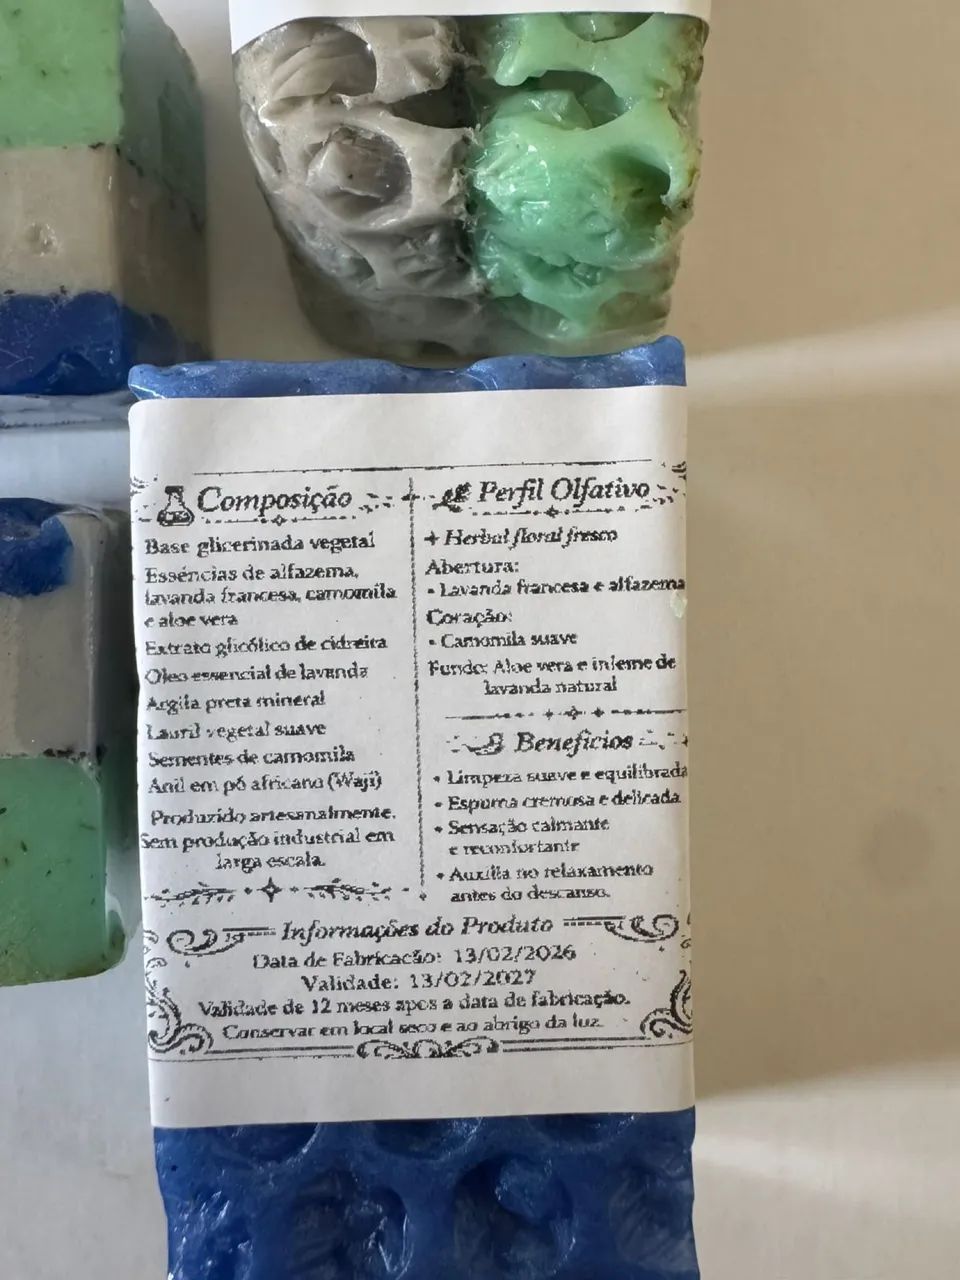 Composição
Base glicerinada vegetal
Essências de alfazema,
lavanda francesa, camomila
e aloe vera
Extrato glicólico de cidreira
Óleo essencial de lavanda
Argila preta mineral
Lauril vegetal suave
Sementes de camomila
Anil em pó africano (Waji)
Produzido artesanalmente.
Sem produção industrial em
larga escala.
Perfil Olfativo
Herbal floral fresco
Abertura:
• Lavanda francesa e alfazema
Coração:
• Camomila suave
Fundo: Aloe vera e infeme de
lavanda natural
Benefícios
• Limpeza suave e equilibrada
• Espuma cremosa e delicada
• Sensação calmante
e reconfortante
• Auxilia no relaxamento
antes do descanso.
Informações do Produto
Data de Fabricação: 13/02/2026
Validade: 13/02/2027
Validade de 12 meses apos a data de fabricação.
Conservar em local seco e ao abrigo da luz.